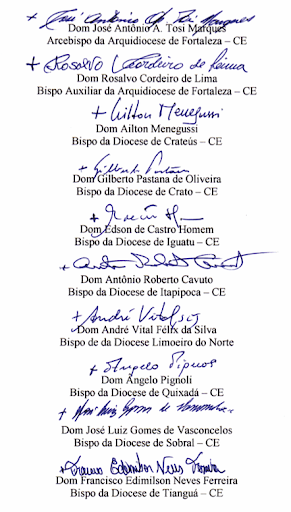 + José Antônio Ap. Tosi Marques
Dom José Antônio A. Tosi Marques
Arcebispo da Arquidiocese de Fortaleza – CE
+ Rosalvo Cordeiro de Lima
Dom Rosalvo Cordeiro de Lima
Bispo Auxiliar da Arquidiocese de Fortaleza – CE
+ Ailton Menegussi
Dom Ailton Menegussi
Bispo da Diocese de Crateús – CE
+ Gilberto Pastana
Dom Gilberto Pastana de Oliveira
Bispo da Diocese de Crato – CE
+ Edson
Dom Edson de Castro Homem
Bispo da Diocese de Iguatu – CE
+
Dom Antônio Roberto Cavuto
Bispo da Diocese de Itapipoca – CE
+ André Vital
Dom André Vital Félix da Silva
Bispo de da Diocese Limoeiro do Norte
+ Angelo Pignoli
Dom Ângelo Pignoli
Bispo da Diocese de Quixadá – CE
+ José Luiz Gomes de Vasconcelos
Dom José Luiz Gomes de Vasconcelos
Bispo da Diocese de Sobral – CE
+ Francisco Edimilson Neves Ferreira
Dom Francisco Edimilson Neves Ferreira
Bispo da Diocese de Tianguá – CE